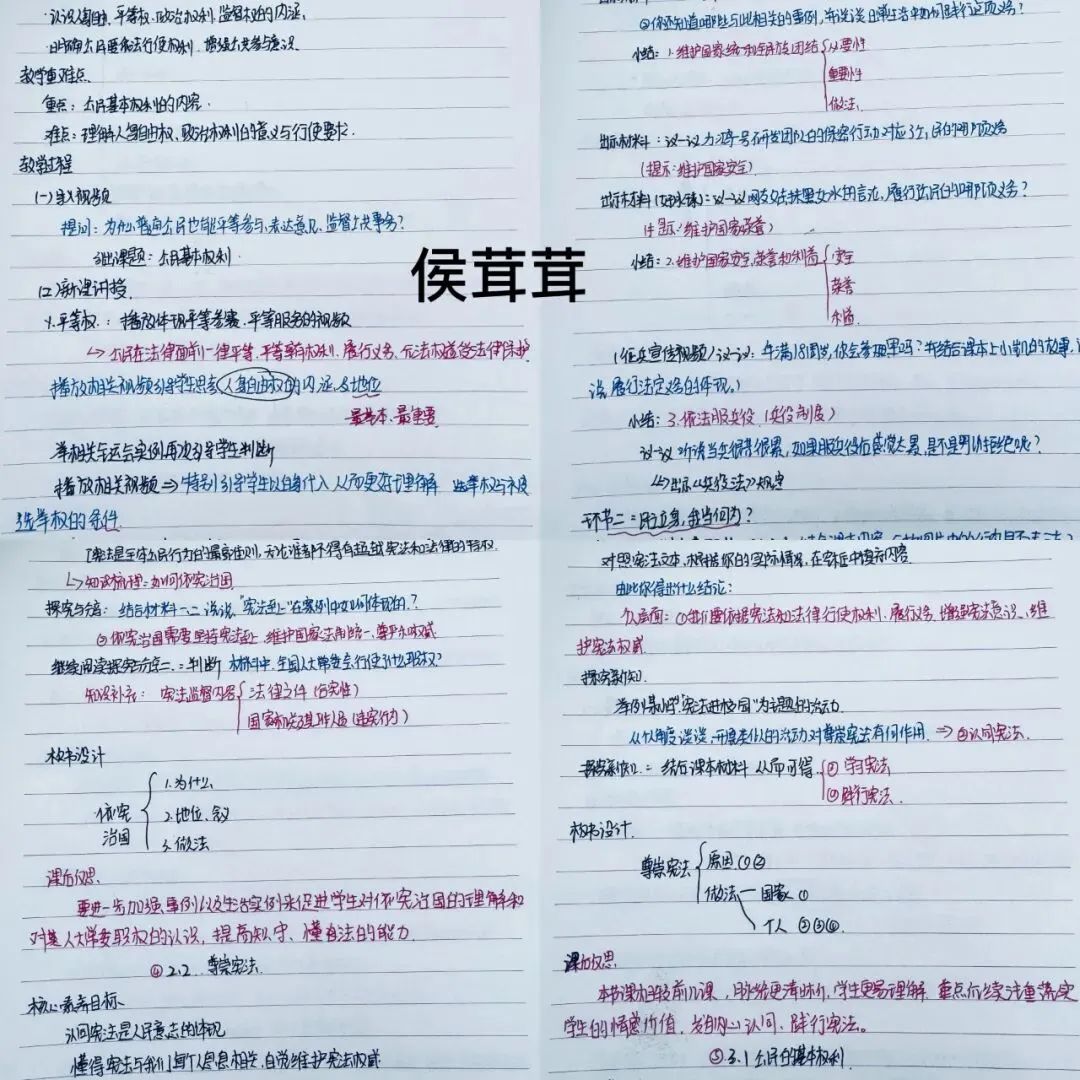 认识人身自由、平等权、政治权利、监督权的内涵。
明确公民要依法行使权利，增强公共参与意识。
教学重难点
重点：公民基本权利的内容。
难点：理解人身自由权、政治权利的意义与行使要求。
教学过程
(一)导入视频
提问：为什么普通公民也能平等参与、表达意见、监督公共事务？
引出课题：公民基本权利
(二)新课讲授
1.平等权：播放体现平等参赛、平等服务的视频
↳公民在法律面前一律平等，平等享有权利、履行义务，合法权益受法律保护。
播放相关视频引导学生思考人身自由权的内涵及地位
最基本、最重要
举相关生活实例再次引导学生判断
播放相关视频⇒特别引导学生以自身代入从而更好理解 选举权与被
选举权的条件
②你还知道哪些与此相关的事例，并谈谈日常生活中如何践行这项义务？
小结：1.维护国家统一和全民族团结
必要性
重要性
做法
出示材料：议一议
(提示：维护国家安全)
履行公民的哪项义务？
(提示：维护国家荣誉)
小结：2.维护国家安全、荣誉和利益
安全
荣誉
利益
(征兵宣传视频)议一议：年满18周岁，你会参军吗？并结合课本上小凯的故事，
谈履行法定义务的体现。)
小结：3.依法服兵役 (兵役制度)
议一议 听说当兵很苦很累，如果服兵役后感觉太累，是不是可以拒绝呢？
↳出示《兵役法》规定
环节二：民立身，我当何为？
侯茸茸
宪法是全体公民行为的最高准则，无论谁都不得有超越宪法和法律的特权。
↳知识梳理：如何依宪治国
探究与分享：结合材料一、二 说说“宪法至上”在案例中如何体现的？
②依宪治国需要坚持宪法至上，维护国家法制统一、尊严和权威
继续阅读探究与分享二：判断 材料中，全国人大常委会行使了什么职权？
知识补充：宪法监督内容
法律文件(合宪性)
国家机关及其工作人员(违宪行为)
板书设计
依宪治国
1.为什么
2.地位、含义
3.做法
课后反思
要进一步加强事例以及生活实例来促进学生对依宪治国的理解和
对其人大常委职权的认识，提高知、守、懂自法的能力
④2.2 尊崇宪法
核心素养目标
认同宪法是人民意志的体现
懂得宪法与我们每个人息息相关，自觉维护宪法权威
对照宪法文本，根据你的实际情况，在实框中填写内容
由此你得出什么结论：
个人层面：①我们要依据宪法和法律行使权利、履行义务，增强宪法意识、维
护宪法权威
探究新知：
举例某小学“宪法进校园”为主题的活动
从个人角度谈谈，开展类似的活动对尊崇宪法有何作用。⇒②认同宪法
探究新知二：结合课本材料 从而可得
③学习宪法
④践行宪法
板书设计
尊崇宪法
原因①②
做法
国家①
个人②③④
课后反思
本节课相较前几课，脉络更清晰，学生更易理解，重点后续注重落实
学生的情感价值，发自内心认同、践行宪法。
⑤3.1公民的基本权利